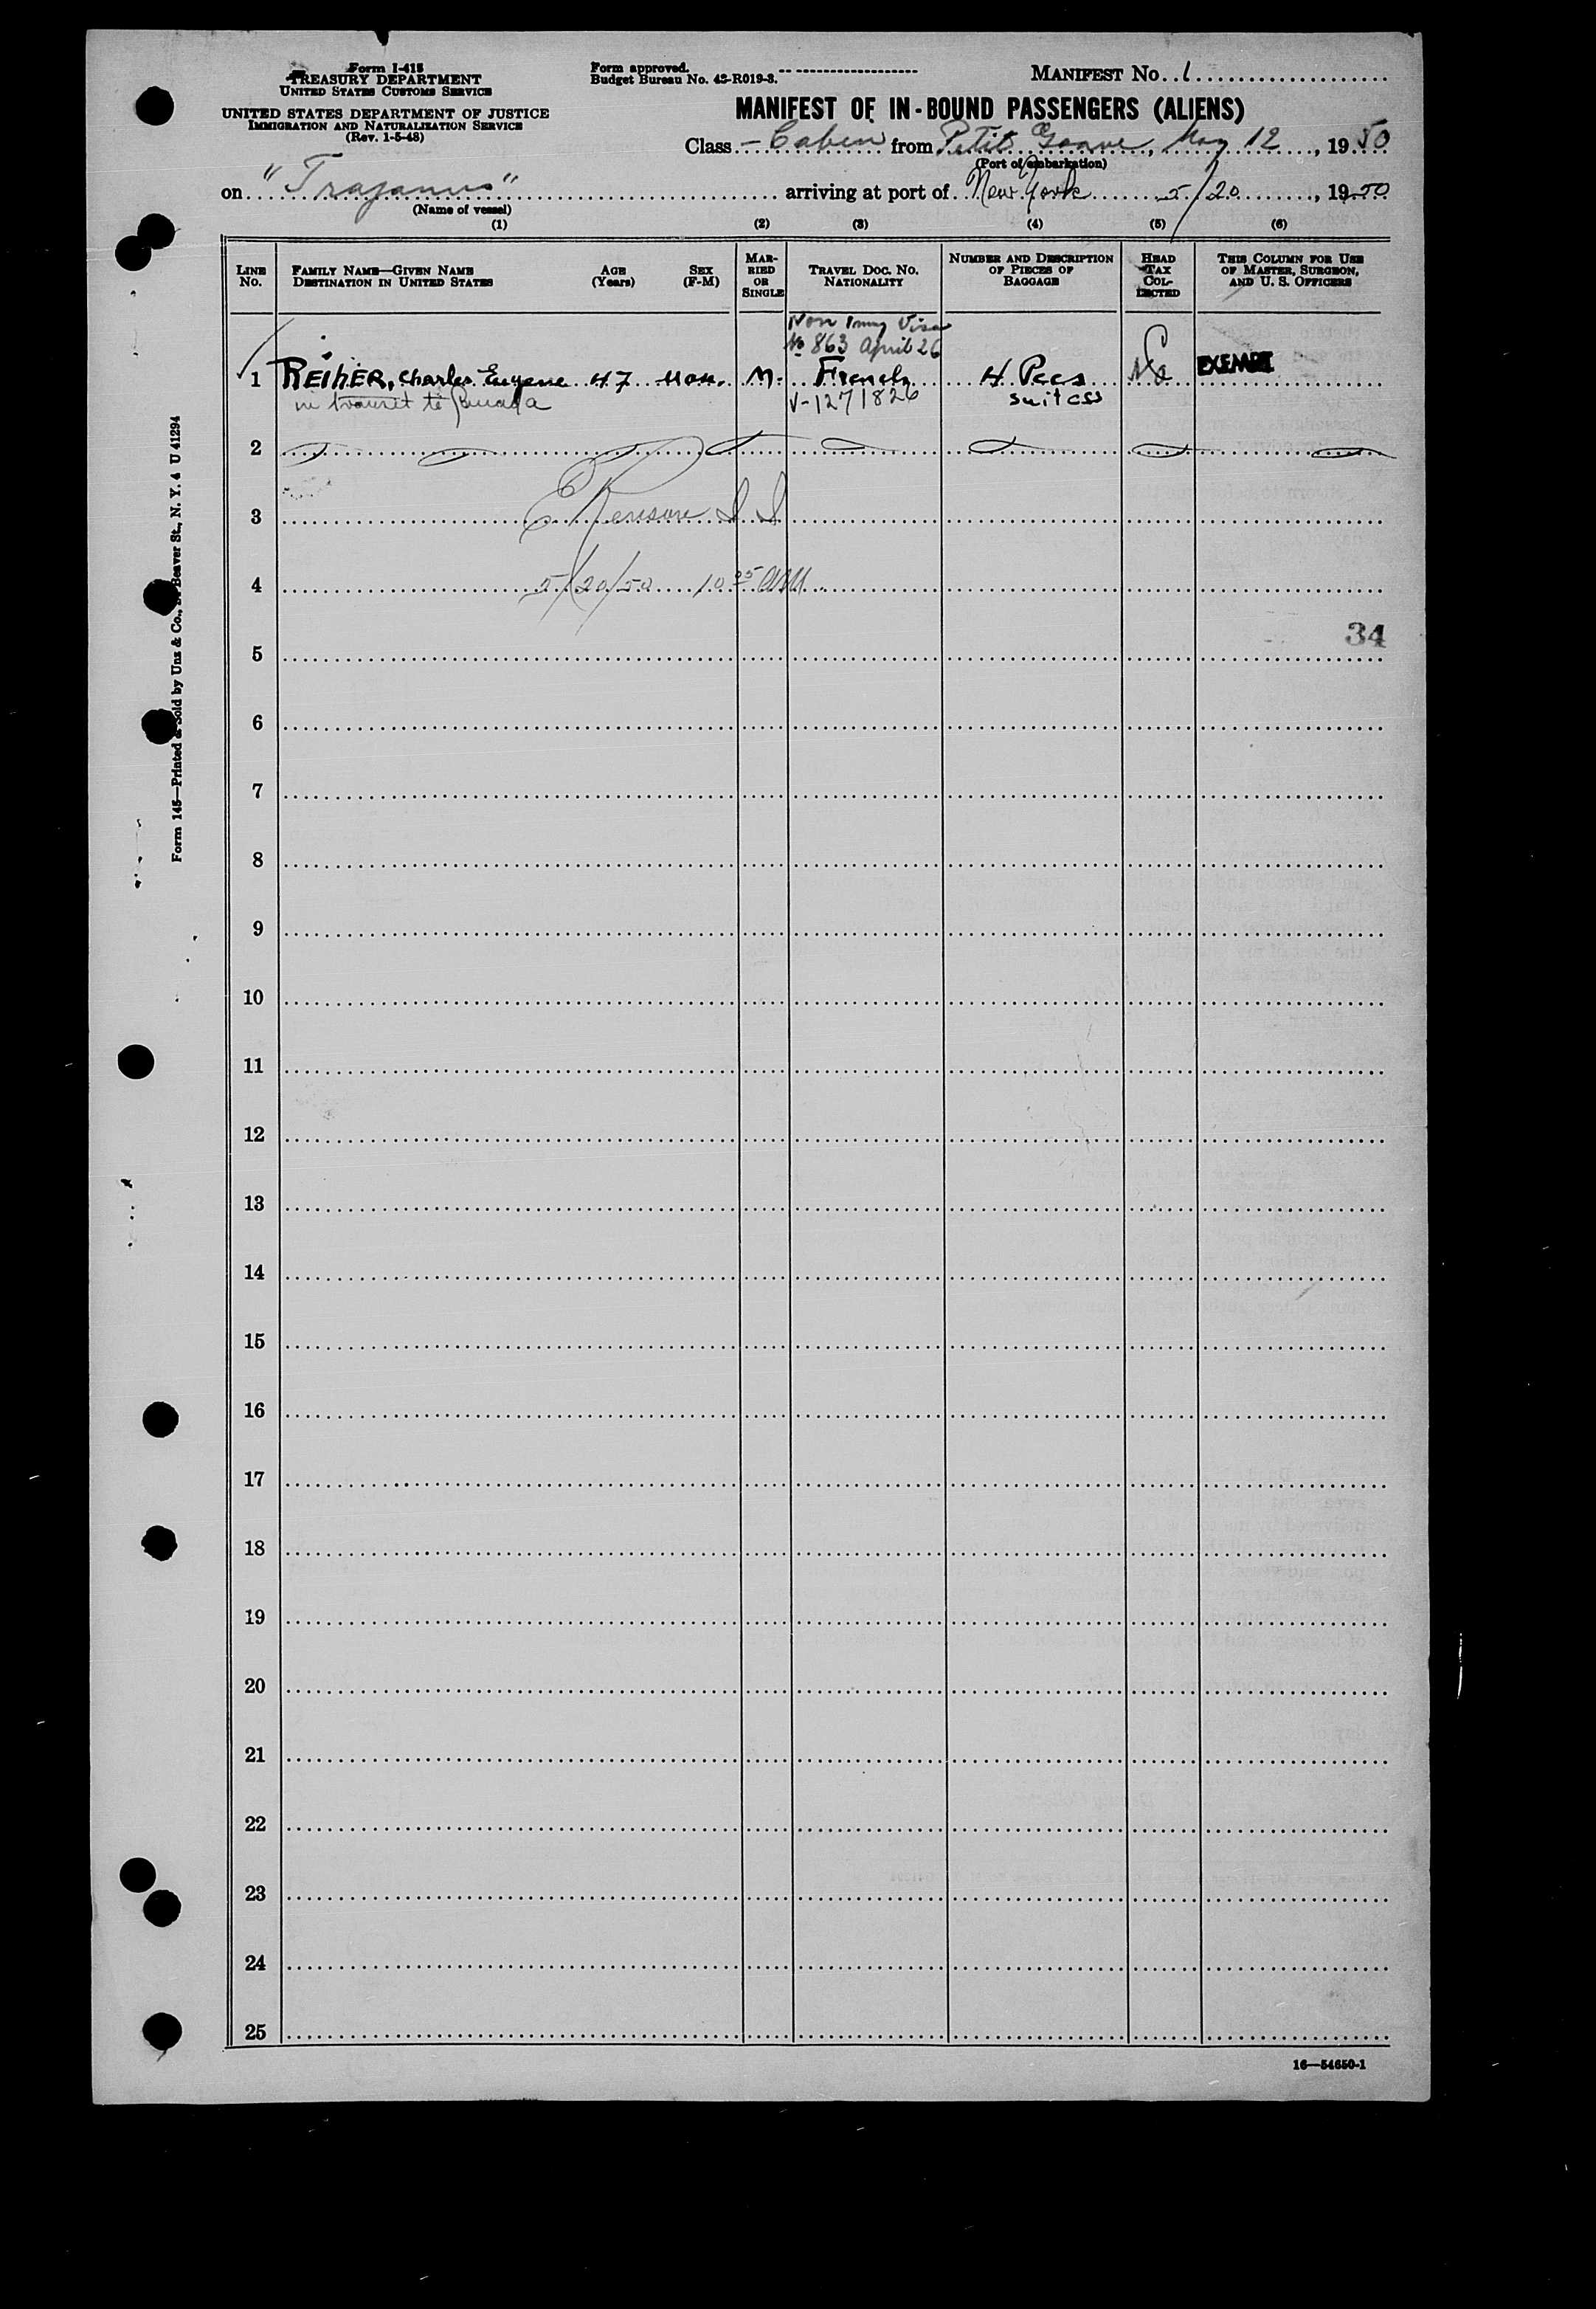 Form I-415
TREASURY DEPARTMENT
UNITED STATES CUSTOMS SERVICE
UNITED STATES DEPARTMENT OF JUSTICE
IMMIGRATION AND NATURALIZATION SERVICE
(Rev. 1-5-48)
Form approved.
Budget Bureau No. 43-R019-3.
MANIFEST No. 1
MANIFEST OF IN-BOUND PASSENGERS (ALIENS)
Class - Cabin from Petit Goave, May 12, 1950
(Port of embarkation)
on "Trajanus" arriving at port of New York 5/20, 1950
(Name of vessel)
(1) (2) (3) (4) (5) (6)
LINE No. FAMILY NAME—GIVEN NAME DESTINATION IN UNITED STATES AGE (Years) SEX (F-M) MARRIED OR SINGLE TRAVEL DOC. No. NATIONALITY NUMBER AND DESCRIPTION OF PIECES OF BAGGAGE HEAD TAX COLLECTED THIS COLUMN FOR USE OF MASTER, SURGEON, AND U. S. OFFICERS
Non Immg Visa
No 863 April 26
1 REIHER, Charles Eugene 47 Man. M. French 4 Pces No EXEMPT
in transit to Canada V-1271826 suitcss
2
3
4 5/20/50 10 05 AM
34
5
6
7
8
9
10
11
12
13
14
15
16
17
18
19
20
21
22
23
24
25
16—54650-1
Form 145—Printed & Sold by Unz & Co., Beaver St., N. Y. 4 U 41294